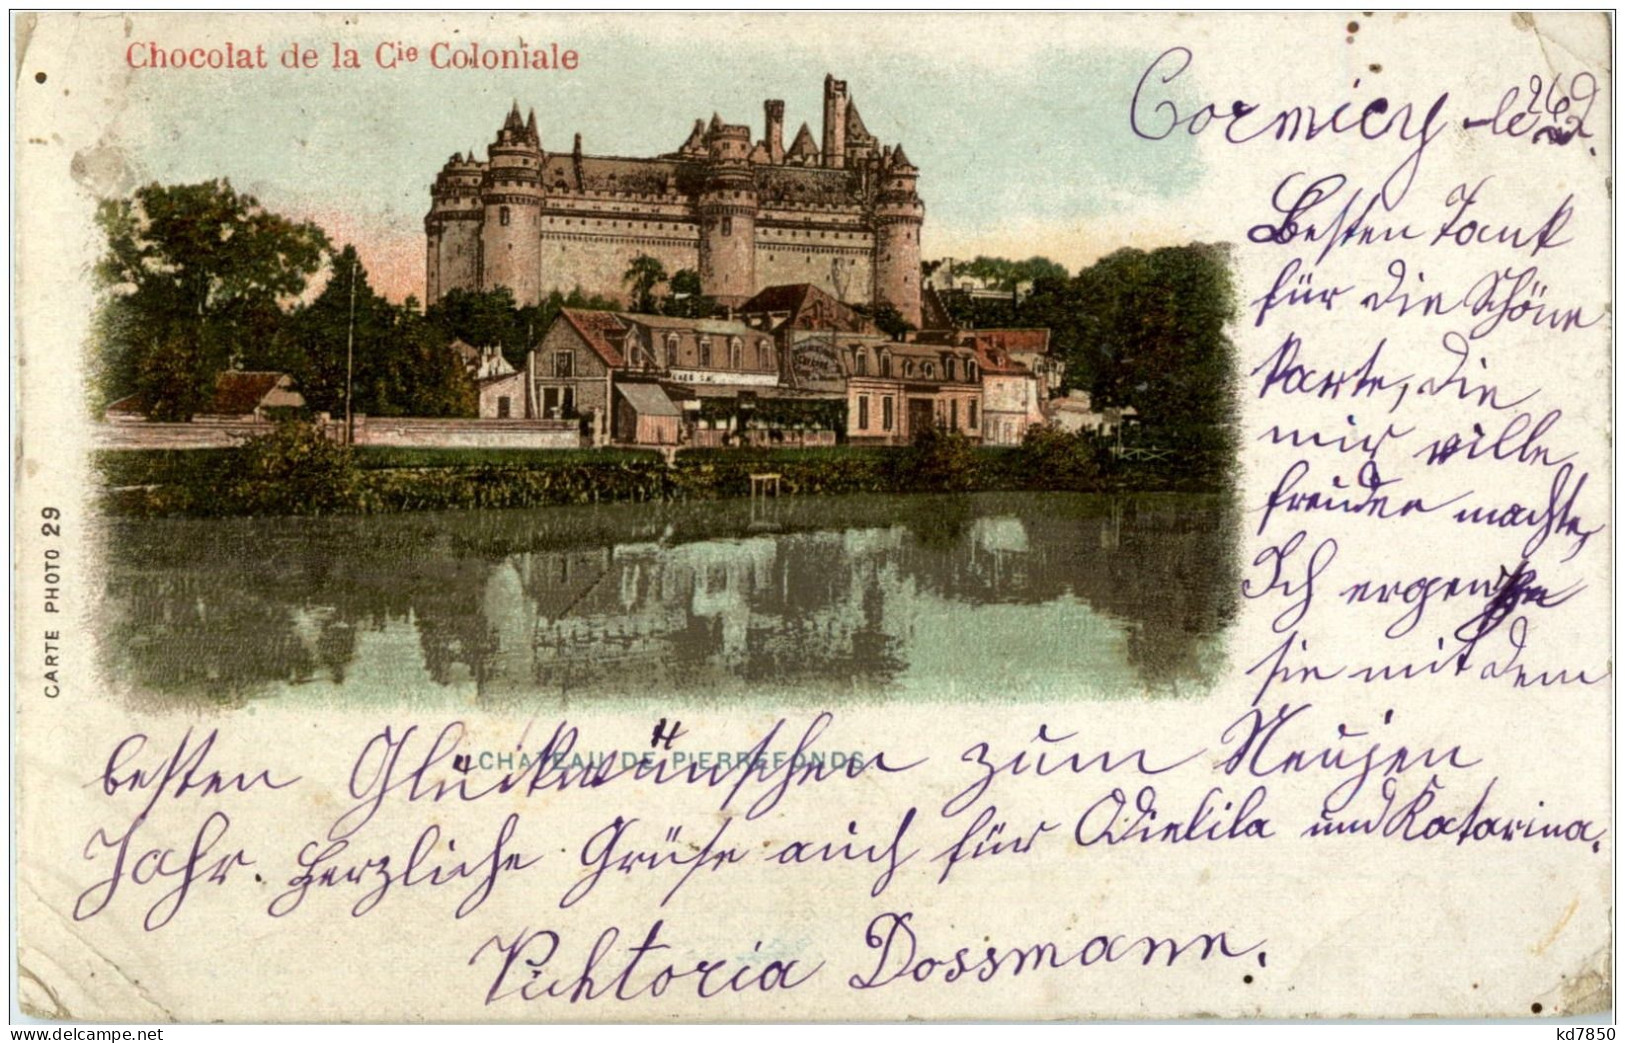 Chocolat de la Cie Coloniale
Cormicy - le 26 D.
Besten Tank
für die Schöne
Karte, die
mir ville
freuden machte,
Ich ergen
sie mit dem
CARTE PHOTO 29
CHATEAU DE PIERREFONDS
besten Glückwünschen zum Neujen
Jahr. Herzliche Grüße auch für Odielila und Katarina.
Vicktoria Dossmann.
kd7850